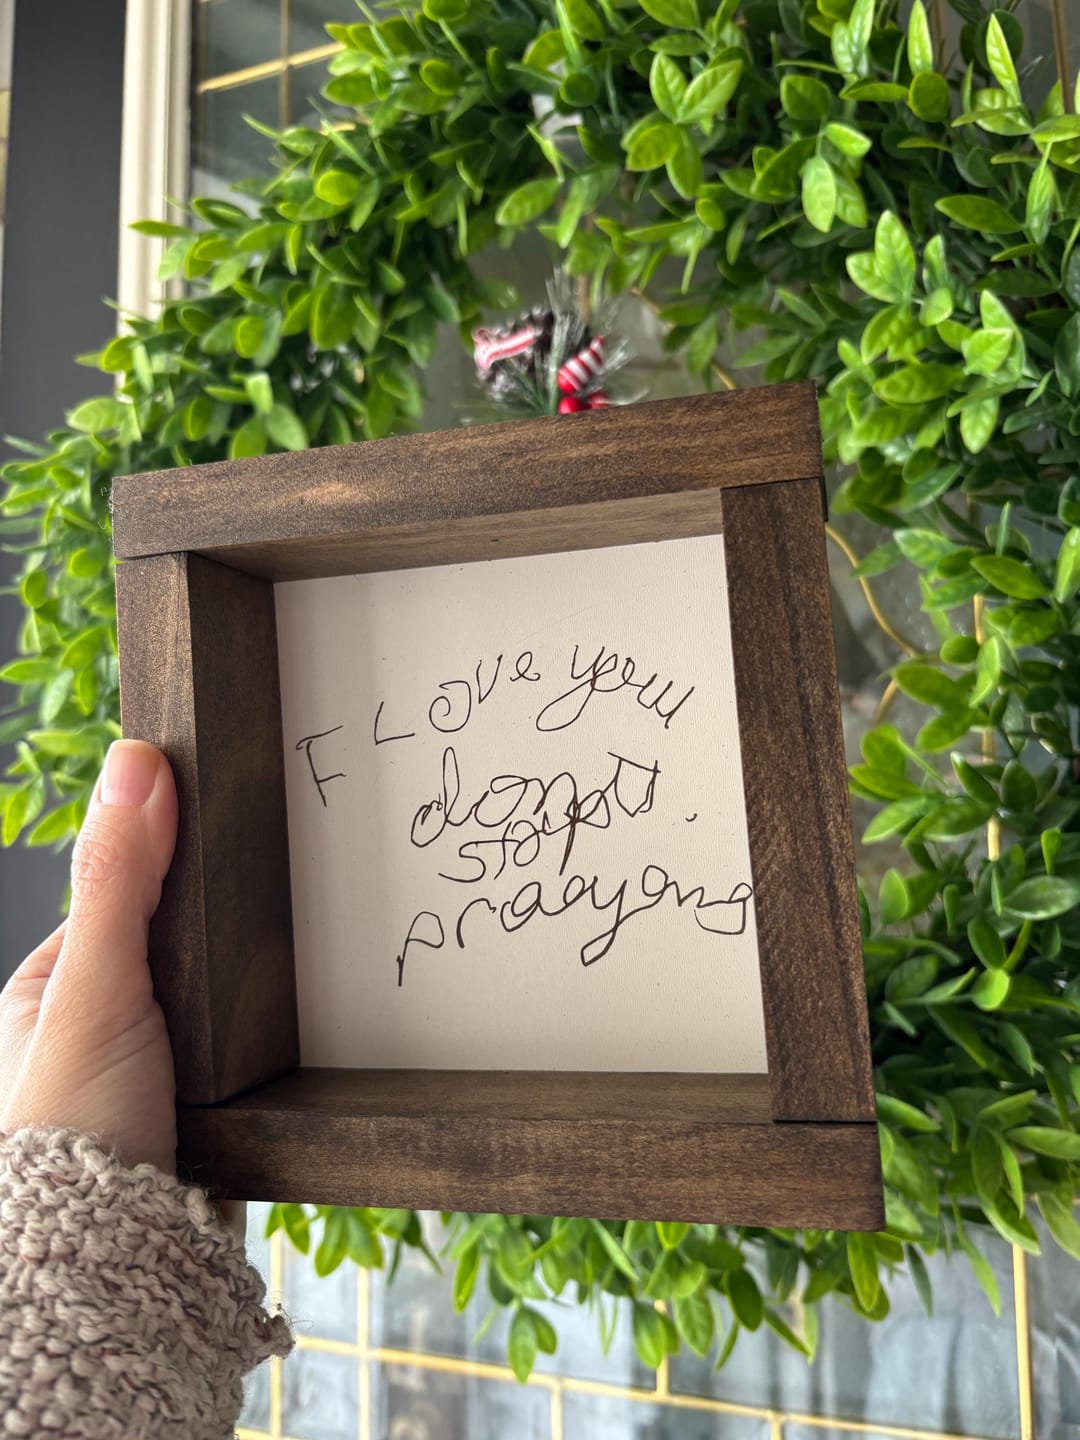 I Love you
don't
stop
praayong